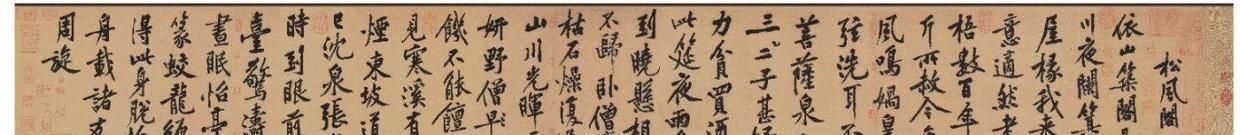 松風閣
依山築閣
川夜闌箕
屋椽我來
意適然老
梧數百年
斤所赦今
風鳴媧皇
弦洗耳不
菩薩泉
三二子甚
力貧買酒
此筵夜雨
到曉懸相
不歸臥僧
枯石燥復
山川光暉
妍野僧旱
饑不能饘
見寒溪有
煙東坡道
已沈泉張
時到眼前
臺驚濤
晝眠怡亭
篆蛟龍纏
得此身脫
舟載諸友
周旋